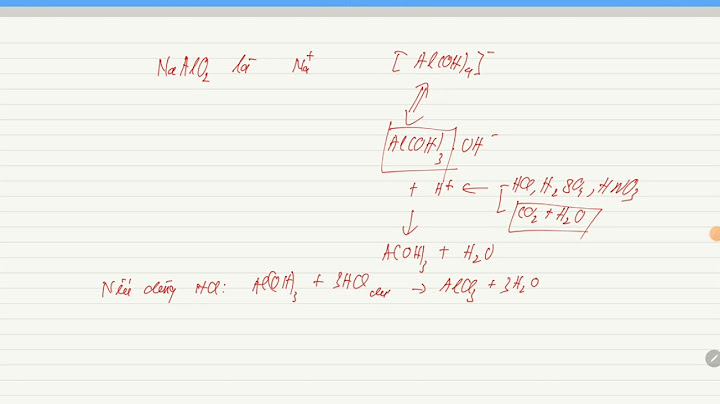 NaAlO₂ là Na⁺ [Al(OH)₄]⁻
Al(OH)₃ · OH⁻
+ H⁺ ← HCl, H₂SO₄, HNO₃
CO₂ + H₂O
Al(OH)₃ + H₂O
Nếu dùng HCl: Al(OH)₃ + 3HCl dư → AlCl₃ + 3H₂O